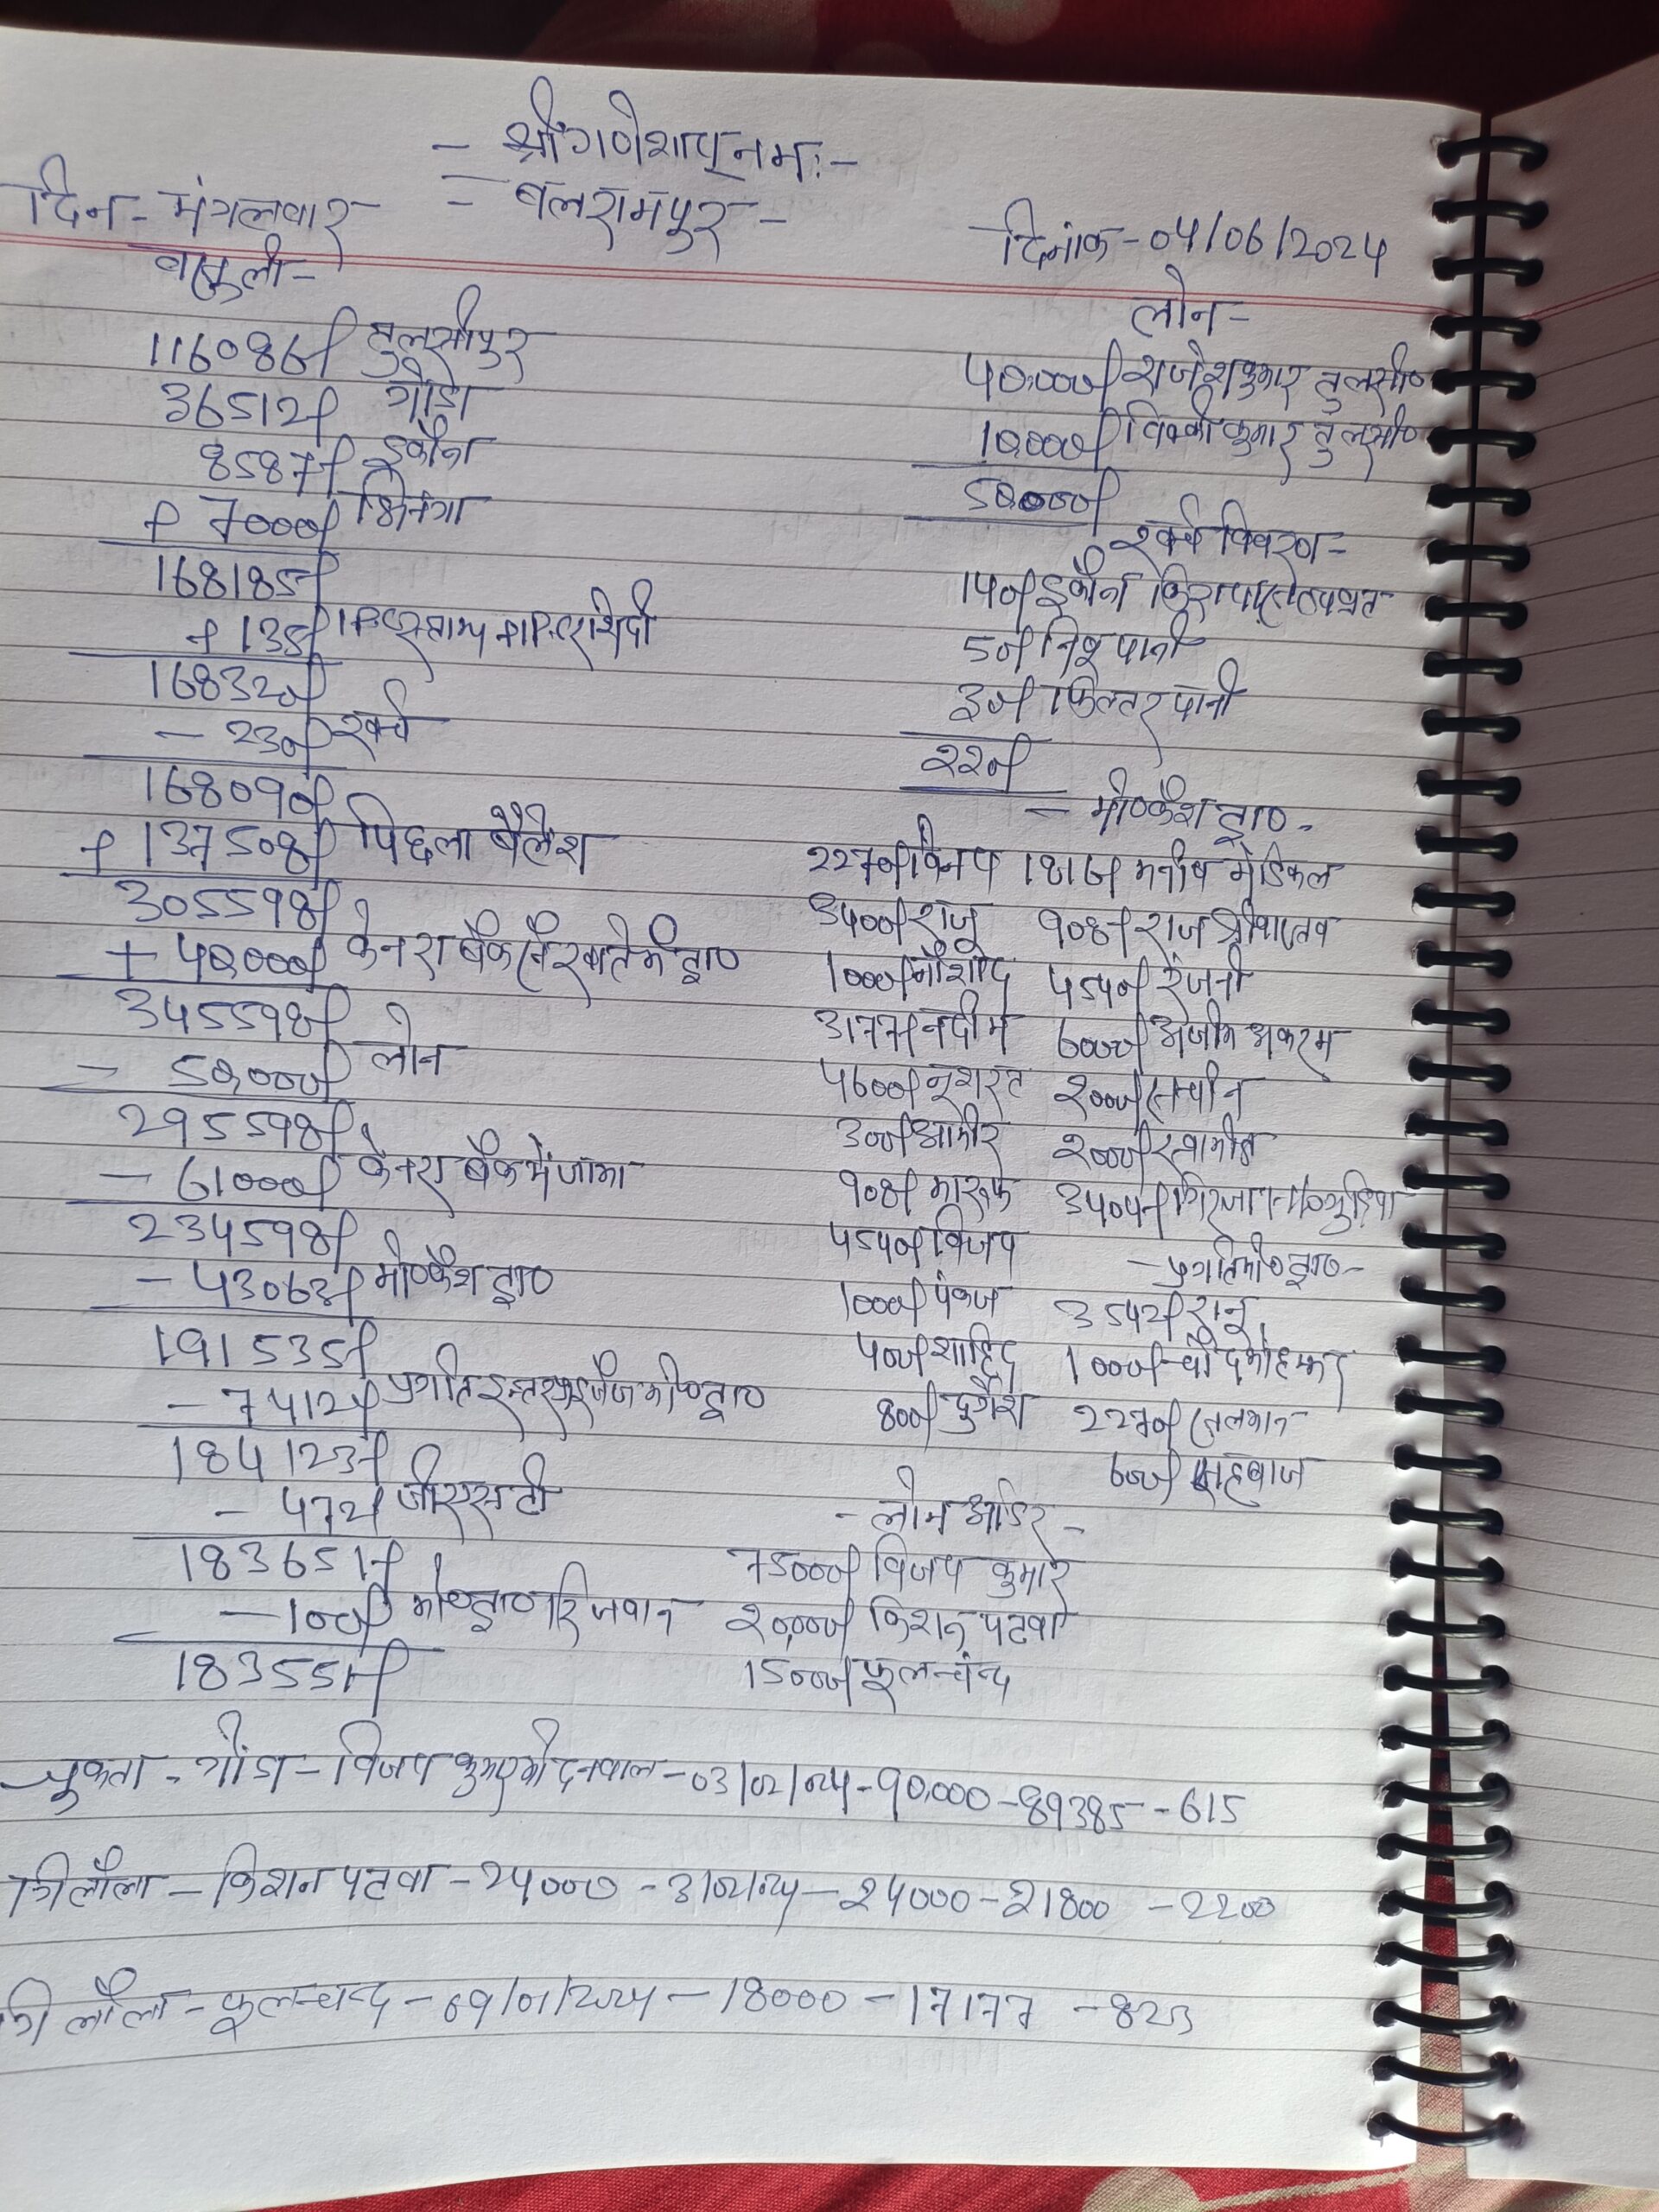 - श्री गणेशाय् नमः -
- बलरामपुर -
दिन - मंगलवार
दिनांक - 04/06/2024
वासुली -
116086/ तुलसीपुर
36512/ गोंडा
8587/ इकौना
+ 7000/ भिनगा
168185/
+ 135/
168320/
- 230/ खर्च
168090/
+ 137508/ पिछला बैलेंश
305598/
+ 40,000/ केनरा बैंक द्वा०
345598/
- 50,000/ लोन
295598/
- 61000/ केनरा बैंक में जामा
234598/
- 43063/ मो०कैश द्वा०
191535/
- 7412/ प्रगति द्वा०
184123/
- 472/ जीएसटी
183651/
- 100/ मो०द्वा० रिजवान
183551/
लोन -
40,000/ राजेश कुमार तुलसी०
10,000/ विक्की कुमार तुलसी०
50,000/
खर्च विवरण -
140/ इकौना किराया
50/ निशू पानी
30/ फिल्टर पानी
220/
- मो०कैश द्वा० -
2270/ विनय 1816/ मनीष मेडिकल
3400/ राजू 908/ राज श्रीवास्तव
1000/ नौशाद 4540/ रंजनी
3177/ नदीम 6000/ अजीम अकरम
4600/ नुशरत 2000/ सचीन
300/ आमीर 2000/
908/ मारूफ 3404/ गिरजा गुड़िया
4540/ विजय
- प्रगति मो० द्वा० -
1000/ पंकज 3542/ रानू
400/ शाहिद 1000/ चाँद मोहम्मद
800/ दुर्गेश 2270/ सलमान
600/ शहबाज
- लोन आर्डर -
75000/ विजय कुमार
20,000/ किशन पटवा
15000/ फूलचन्द
चुकता - गोंडा - विजय कुमार मोदनवाल - 03/02/24 - 90,000 - 89385 - 615
किशन पटवा - 24000 - 3/02/24 - 24000 - 21800 - 2200
फूलचन्द - 09/01/2024 - 18000 - 17177 - 823